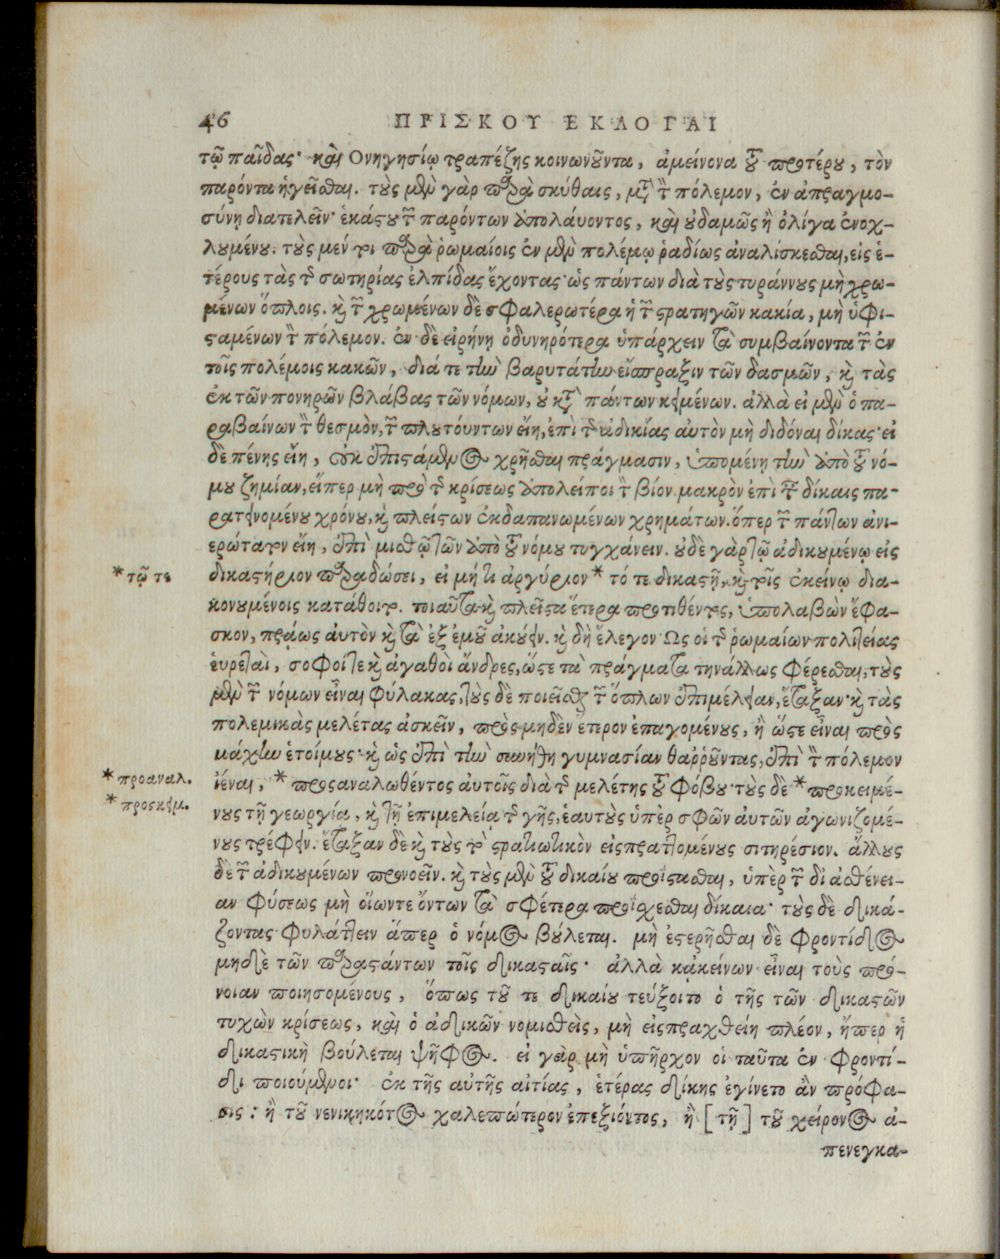 46 ΠΡΙΣΚΟΥ ΕΚΛΟΓΑΙ
τῷ παῖδας· καὶ Ονηγησίῳ τραπέζης κοινωνοῦντα, ἀμείνονα τοῦ προτέρου, τὸν
παρόντα ἡγεῖσθαι. τοὺς μὲν γὰρ παρὰ σκύθαις, μετὰ τὸν πόλεμον, ἐν ἀπραγμο-
σύνῃ διατελεῖν· ἑκάστου τῶν παρόντων ἀπολάυοντος, καὶ οὐδαμῶς ἢ ὀλίγα ἐνοχ-
λουμένου. τοὺς μέν τοι παρὰ ῥωμαίοις ἐν μὲν πολέμῳ ῥαδίως ἀναλίσκεσθαι, εἰς ἑ-
τέρους τὰς τῆς σωτηρίας ἐλπίδας ἔχοντας· ὡς πάντων διὰ τοὺς τυράννους μὴ χρω-
μένων ὅπλοις. καὶ τῶν χρωμένων δὲ σφαλερωτέρα ἡ τῶν στρατηγῶν κακία, μὴ ὑφι-
σταμένων τὸν πόλεμον. ἐν δὲ εἰρήνη ὀδυνηρότερα ὑπάρχειν τὰ συμβαίνοντα τῶν ἐν
τοῖς πολέμοις κακῶν, διά τε τὴν βαρυτάτην εἴσπραξιν τῶν δασμῶν, καὶ τὰς
ἐκ τῶν πονηρῶν βλάβας τῶν νόμων, οὐ κατὰ πάντων κειμένων. ἀλλὰ εἰ μὲν ὁ πα-
ραβαίνων τὸν θεσμὸν, τῶν πλουτούντων εἴη, ἐπὶ τῆς ἀδικίας αὐτὸν μὴ διδόναι δίκας· εἰ
δὲ πένης εἴη, οὐκ ἐπιστάμενος χρῆσθαι πράγμασιν, ὑπομένη τὴν ἀπὸ τοῦ νό-
μου ζημίαν, εἴπερ μὴ πρὸ τῆς κρίσεως ἀπολείποι τὸν βίον. μακρὸν ἐπὶ ταῖς δίκαις πα-
ρατεινομένου χρόνου, καὶ πλείστων ἐκδαπανωμένων χρημάτων. ὅπερ τῶν πάντων ἀνι-
ερώτατον εἴη, ἐπὶ μισθῷ τῶν ἀπὸ τοῦ νόμου τυγχάνειν. οὐδὲ γὰρ τῷ ἀδικουμένῳ εἰς
*τῷ τε δικαστήριον παραδώσει, εἰ μή τι ἀργύριον * τό τε δικαστῇ, καὶ τοῖς ἐκείνῳ δια-
κονουμένοις κατάθοιτο. τοιαῦτα καὶ πλεῖστα ἕτερα προτιθέντος, ὑπολαβὼν ἔφα-
σκον, πράως αὐτὸν καὶ τὰ ἐξ ἐμοῦ ἀκούειν. καὶ δὴ ἔλεγον· Ως οἱ τῆς ῥωμαίων πολιτείας
ἑυρεταὶ, σοφοίτε καὶ ἀγαθοὶ ἄνδρες, ὥστε τὰ πράγματα τηνάλλως φέρεσθαι, τοὺς
μὲν τῶν νόμων εἶναι φύλακας, τοὺς δὲ ποιεῖσθαι τῶν ὅπλων ἐπιμέλειαν, ἔταξαν· καὶ τὰς
πολεμικὰς μελέτας ἀσκεῖν, πρὸς μηδὲν ἕτερον ἐπαγομένους, ἢ ὥστε εἶναι πρὸς
μάχην ἑτοίμους· καὶ ὡς ἐπὶ τὴν συνήθη γυμνασίαν θαῤῥοῦντας, ἐπὶ τὸν πόλεμον
*προαναλ. ἰέναι, * προςαναλωθέντος αὐτοῖς διὰ τῆς μελέτης τοῦ φόβου· τοὺς δὲ * προκειμέ-
*προςκειμ. νους τῇ γεωργία, καὶ τῇ ἐπιμελείᾳ τῆς γῆς, ἑαυτοὺς ὑπέρ σφῶν αὐτῶν ἀγωνιζομέ-
νους τρέφειν. ἔταξαν δὲ καὶ τοὺς τὸ στρατιωτικὸν εἰσπραττομένους σιτηρέσιον. ἄλλους
δὲ τῶν ἀδικουμένων προνοεῖν. καὶ τοὺς μὲν τοῦ δικαίου προΐστασθαι, ὑπὲρ τῶν δι᾽ ἀσθένει-
αν φύσεως μὴ οἵωντε ὄντων τὰ σφέτερα προΐσχεσθαι δίκαια· τοὺς δὲ δικά-
ζοντας φυλάττειν ἅπερ ὁ νόμος βούλεται. μὴ ἐστερῆσθαι δὲ φροντίδος
μηδὲ τῶν παραστάντων τοῖς δικασταῖς· ἀλλὰ κἀκείνων εἶναι τοὺς πρό-
νοιαν ποιησομένους, ὅπως τοῦ τε δικαίου τεύξοιτο ὁ τῆς τῶν δικαστῶν
τυχὼν κρίσεως, καὶ ὁ ἀδικῶν νομισθεὶς, μὴ εἰςπραχθείη πλέον, ἤπερ ἡ
δικαστικὴ βούλεται ψῆφος. εἰ γὰρ μὴ ὑπῆρχον οἱ ταῦτα ἐν φροντί-
δι ποιούμενοι· ἐκ τῆς αὐτῆς αἰτίας, ἑτέρας δίκης ἐγίνετο ἂν πρόφα-
σις: ἢ τοῦ νενικηκότος χαλεπώτερον ἐπεξιόντος, ἢ [τῇ] τοῦ χείρονος ἀ-
πενεγκα-